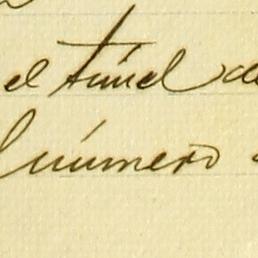 el túnel de
número